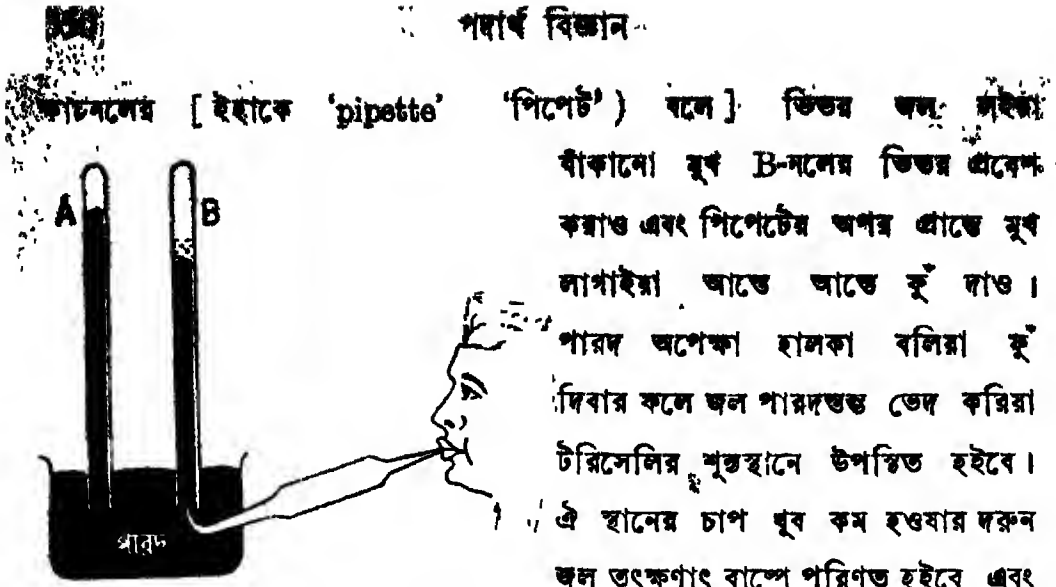 পদার্থ বিজ্ঞান
কাচনলের [ ইহাকে 'pipette' 'পিপেট' ) বলে ] ভিতর জল লইয়া
বাঁকানো মুখ B-নলের ভিতর প্রবেশ
করাও এবং পিপেটের অপর প্রান্তে মুখ
লাগাইয়া আস্তে আস্তে ফুঁ দাও ।
পারদ অপেক্ষা হালকা বলিয়া ফুঁ
দিবার ফলে জল পারদস্তম্ভ ভেদ করিয়া
টরিসেলির শূন্যস্থানে উপস্থিত হইবে ।
ঐ স্থানের চাপ খুব কম হওযার দরুন
জল তৎক্ষণাৎ বাষ্পে পরিণত হইবে এবং
A
B
পারদ